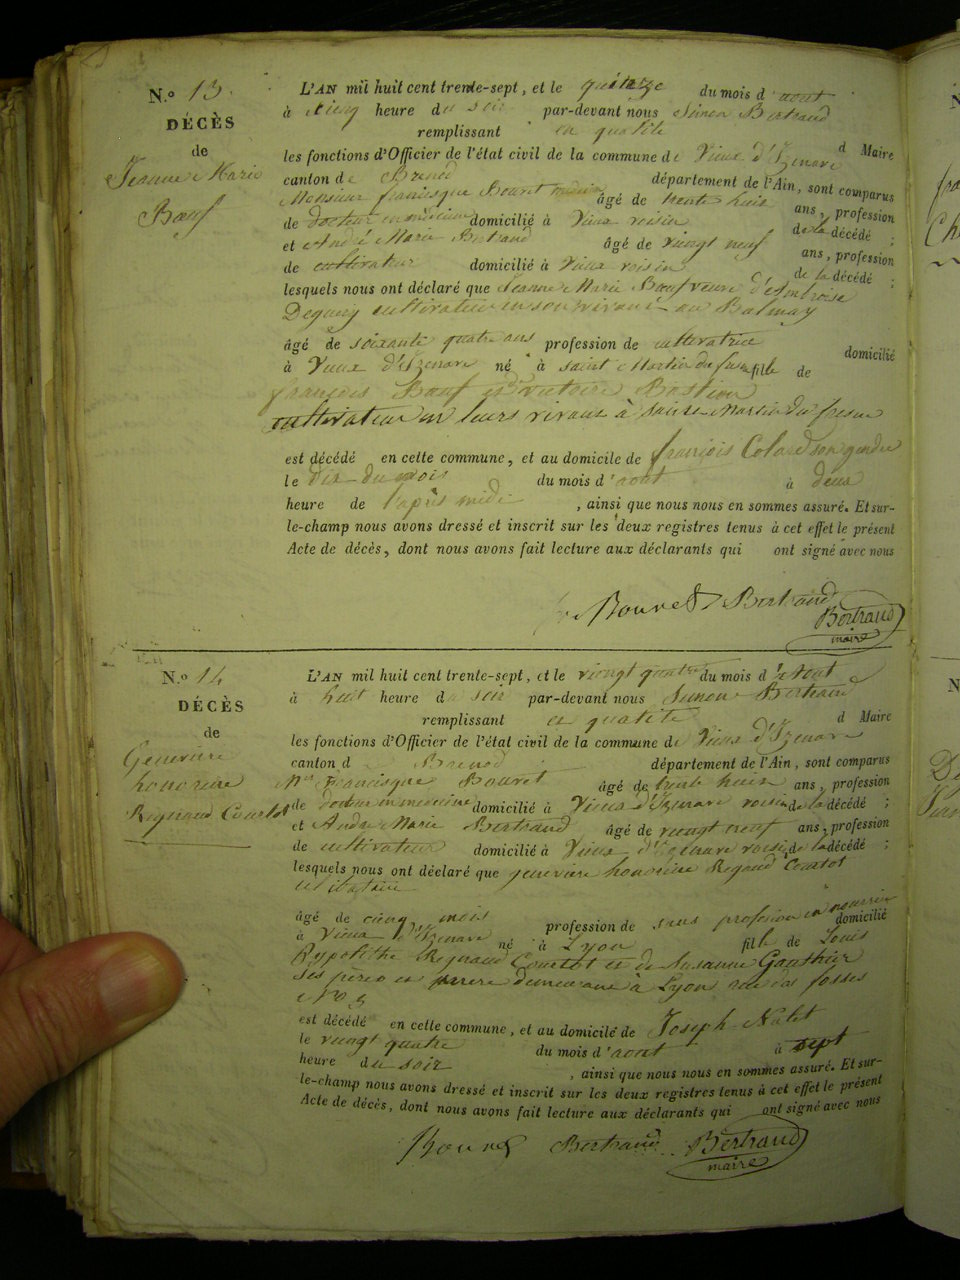 N.o 13.
DÉCÈS
de
Jeanne Marie
Bœuf
L'AN mil huit cent trente-sept, et le quinze du mois d'aout
à cinq heure du soir par-devant nous Simon Bertrand
remplissant en qualité d Maire
les fonctions d'Officier de l'état civil de la commune de Vieux d'Izenave
canton de Brenod département de l'Ain, sont comparus
Monsieur francisque Bouvet âgé de trente huit ans, profession
de docteur en médecine domicilié à Vieux voisin de la décédé ;
et André Marie Bertrand âgé de vingt neuf ans, profession
de cultivateur domicilié à Vieux voisin de la décédé ;
lesquels nous ont déclaré que Jeanne Marie Bœuf veuve d'Ambroise
cultivateur en son vivant au Balmay
âgé de soixante quatre ans profession de cultivatrice domicilié
à Vieux d'Izenave né à saint Martin du fresne fille de
françois Bœuf et
cultivateur en leurs vivant à saint Martin du fresne
est décédé en cette commune, et au domicile de françois Coland son gendre
le dix du mois du mois d'aout à deux
heure de l'après midi , ainsi que nous nous en sommes assuré. Et sur-
le-champ nous avons dressé et inscrit sur les deux registres tenus à cet effet le présent
Acte de décès, dont nous avons fait lecture aux déclarants qui ont signé avec nous
Bouvet Bertrand
Bertrand
maire
N.o 14
DÉCÈS
de
Genevieve
honorine
Regnaud Courtot
L'AN mil huit cent trente-sept, et le vingt quatre du mois d'Aout
à huit heure du soir par-devant nous Simon Bertrand
remplissant en qualité d Maire
les fonctions d'Officier de l'état civil de la commune de Vieux d'Izenave
canton d e Brenod département de l'Ain, sont comparus
Mr Francisque Bouvet âgé de trente huit ans, profession
de docteur en medecine domicilié à Vieux d'Izenave voisin de la décédé ;
et André Marie Bertrand âgé de vingt neuf ans, profession
de cultivateur domicilié à Vieux d'Izenave voisin de la décédé ;
lesquels nous ont déclaré que genevieve honorine Regnaud Courtot
celibataire
âgé de cinq mois profession de sans profession en nourrice domicilié
à Vieux d'Izenave né à Lyon fille de Louis
Hypolithe Regnaud Courtot et de Susanne Gauthier
Ses père et mere demeurant à Lyon rue des fosses
No 5
est décédé en cette commune, et au domicile de Joseph Nalet
le vingt quatre du mois d'aout à sept
heure du soir , ainsi que nous nous en sommes assuré. Et sur-
le-champ nous avons dressé et inscrit sur les deux registres tenus à cet effet le présent
Acte de décès, dont nous avons fait lecture aux déclarants qui ont signé avec nous
Bouvet Bertrand Bertrand
maire